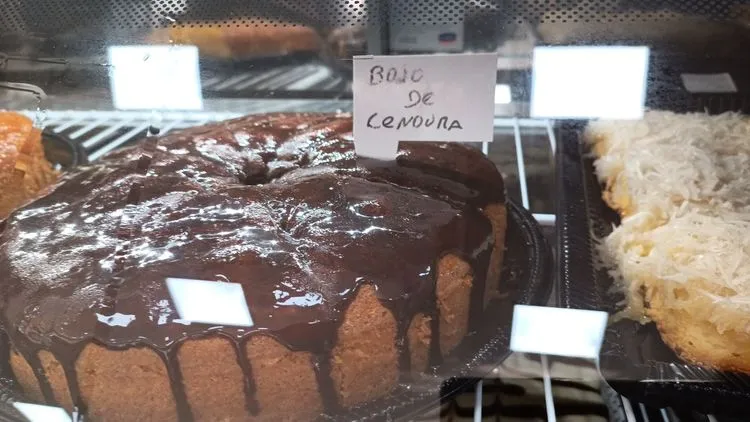 BOLO
DE
CENOURA